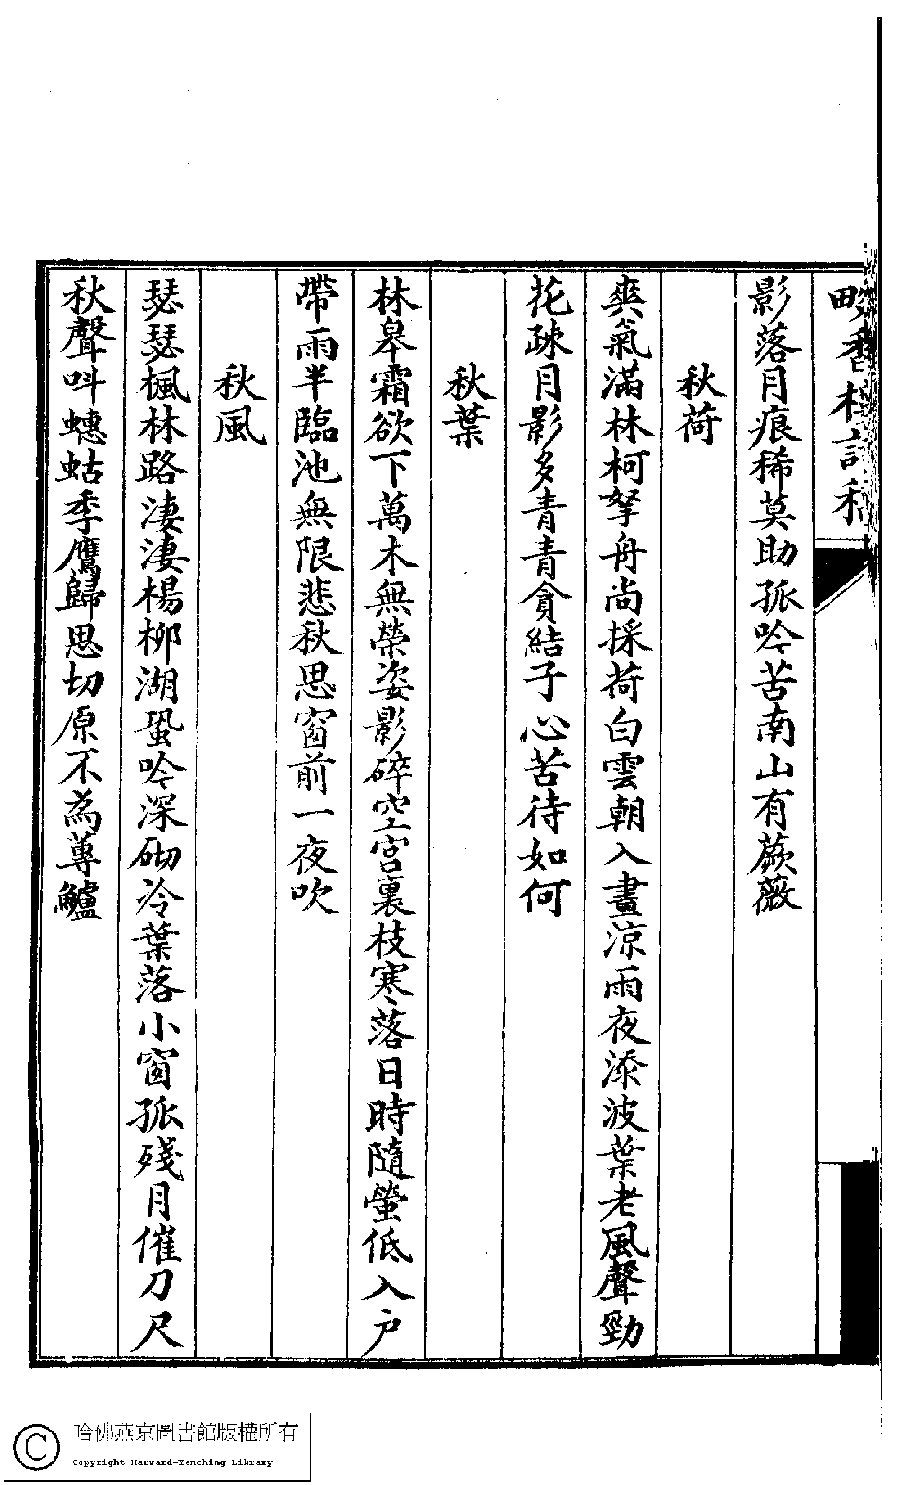 影落月痕稀莫助孤吟苦南山有蕨薇
秋荷
爽氣滿林柯拏舟尚採荷白雲朝入畫涼雨夜添波葉老風聲勁
花疎月影多青青貪結子心苦待如何
秋葉
林皋霜欲下萬木無榮姿影碎空宮裏枝寒落日時隨螢低入戶
帶雨半臨池無限悲秋思窗前一夜吹
秋風
瑟瑟楓林路淒淒楊柳湖蛩吟深砌冷葉落小窗孤殘月催刀尺
秋聲叫蟪蛄季鷹歸思切原不為蓴鱸
哈佛燕京圖書館版權所有
Copyright Harvard-Yenching Library